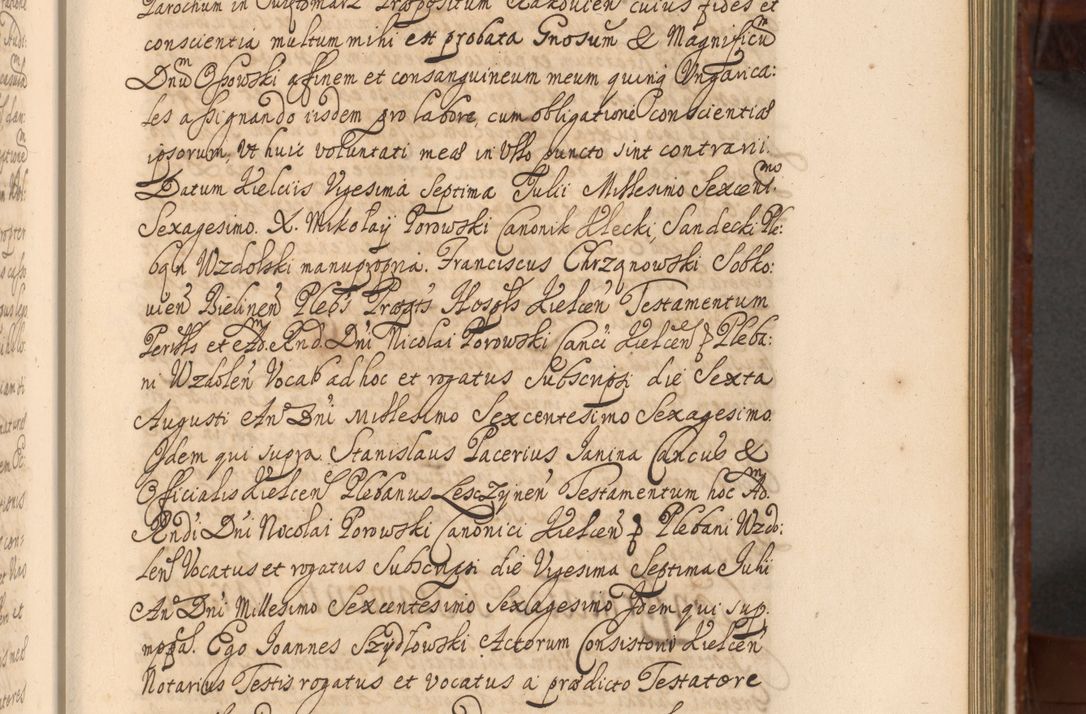 Parochum in Præpositum cuius fides et
conscientia multum mihi est probata Gnosum & Magnificu͂m
Dnum Ossowski affinem et consanguineum meum quinq Ungarica:
les assignando iisdem pro labore, cum obligatione conscientiæ
ipsorum, ut huic voluntati meæ in ullo puncto sint contrarii.
Datum Kielciis Vigesima Septima Julii Millesimo Sexcent:mo
Sexagesimo. X. Mikolaÿ Porowski Canonik Kłecki, Sandecki Ple:
bąn Wzdolski manupropria. Franciscus Chrząnowski Sobko:
vien Bielinen Plebs Præpts Hosplis Kielcen Testamentum
et Adm Rnd Dni Nicolai Porowski Canci Kielcen Pleba:
ni Wzdolen Vocab ad hoc et rogatus Subscripsi die Sexta
Augusti Ano Dni Millesimo Sexcentesimo Sexagesimo
Idem qui supra Stanislaus Pacerius Janina Cancus &
Officialis Kielcen Plebanus Lesczynen Testamentum hoc Adm
Rndi Dni Nocolai Porowski Canonici Kielcen Plebani Wzdo:
len Vocatus et rogatus Subscripsi die Vigesima Septima Julii
Ano Dni Millesimo Sexcentesimo Sexagesimo Idem qui sup.
mppa. Ego Joannes Szydłowski Actorum Consistorii Kielcen
Notarius Testis rogatus et vocatus a prædicto Testatore